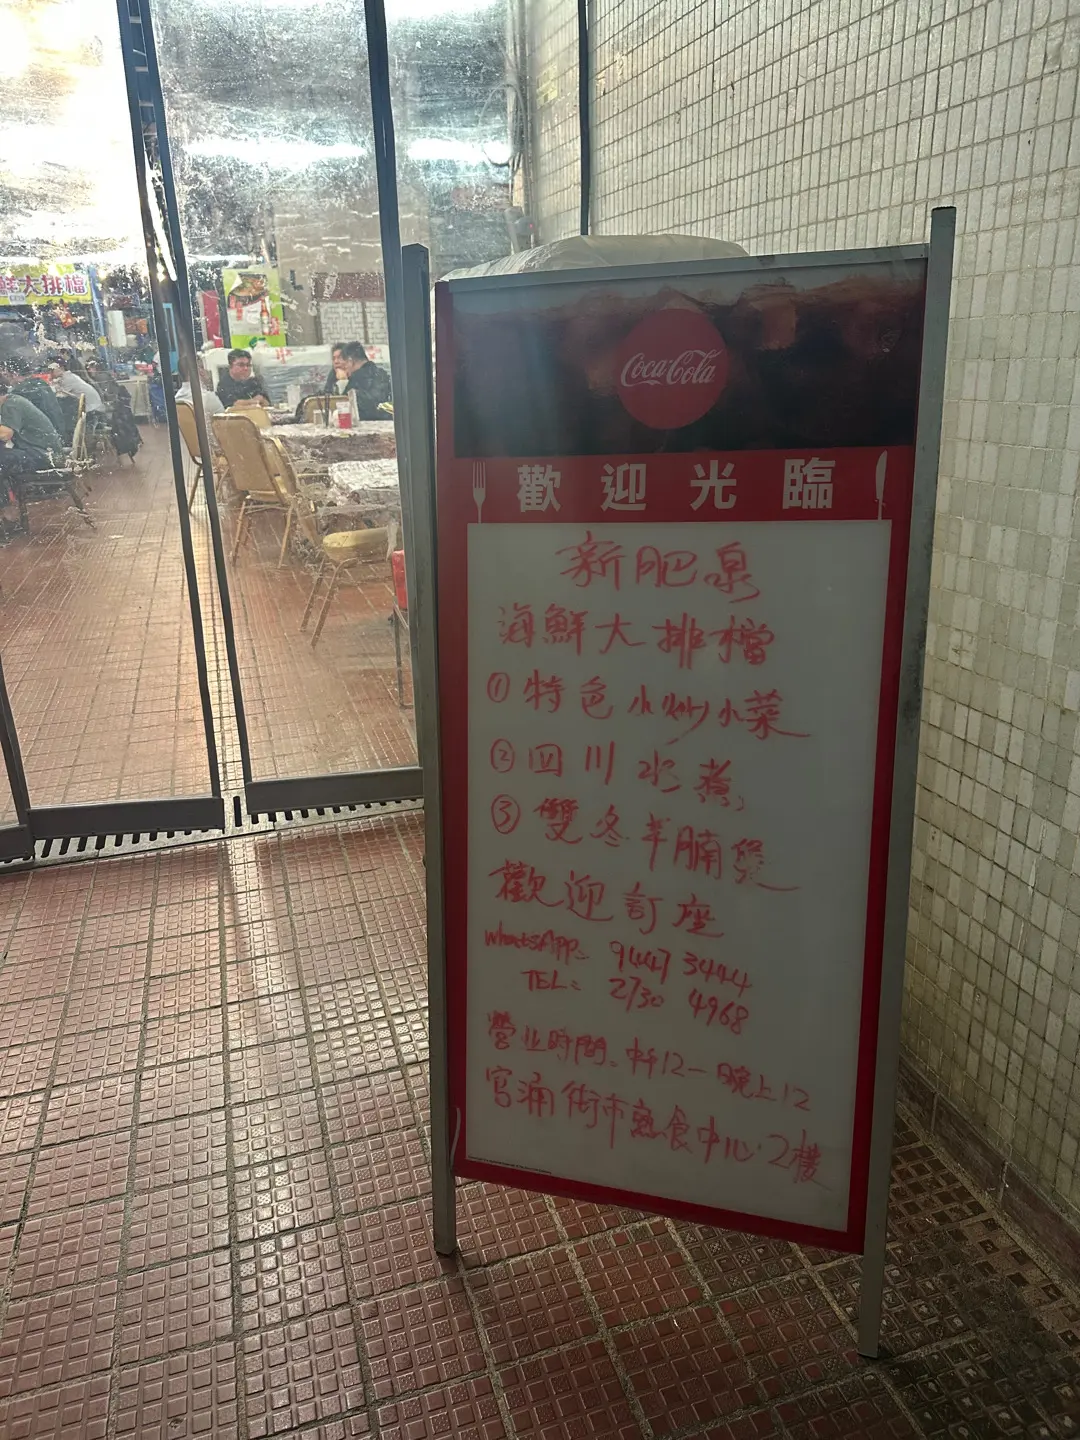 鮮大排檔
Coca-Cola
歡迎光臨
新肥泉
海鮮大排檔
①特色小炒小菜
②四川水煮
③雙冬羊腩煲
歡迎訂座
WhatsApp: 9447 3444
TEL: 2730 4968
營业時間: 中午12一晚上12
官涌街市熟食中心2樓